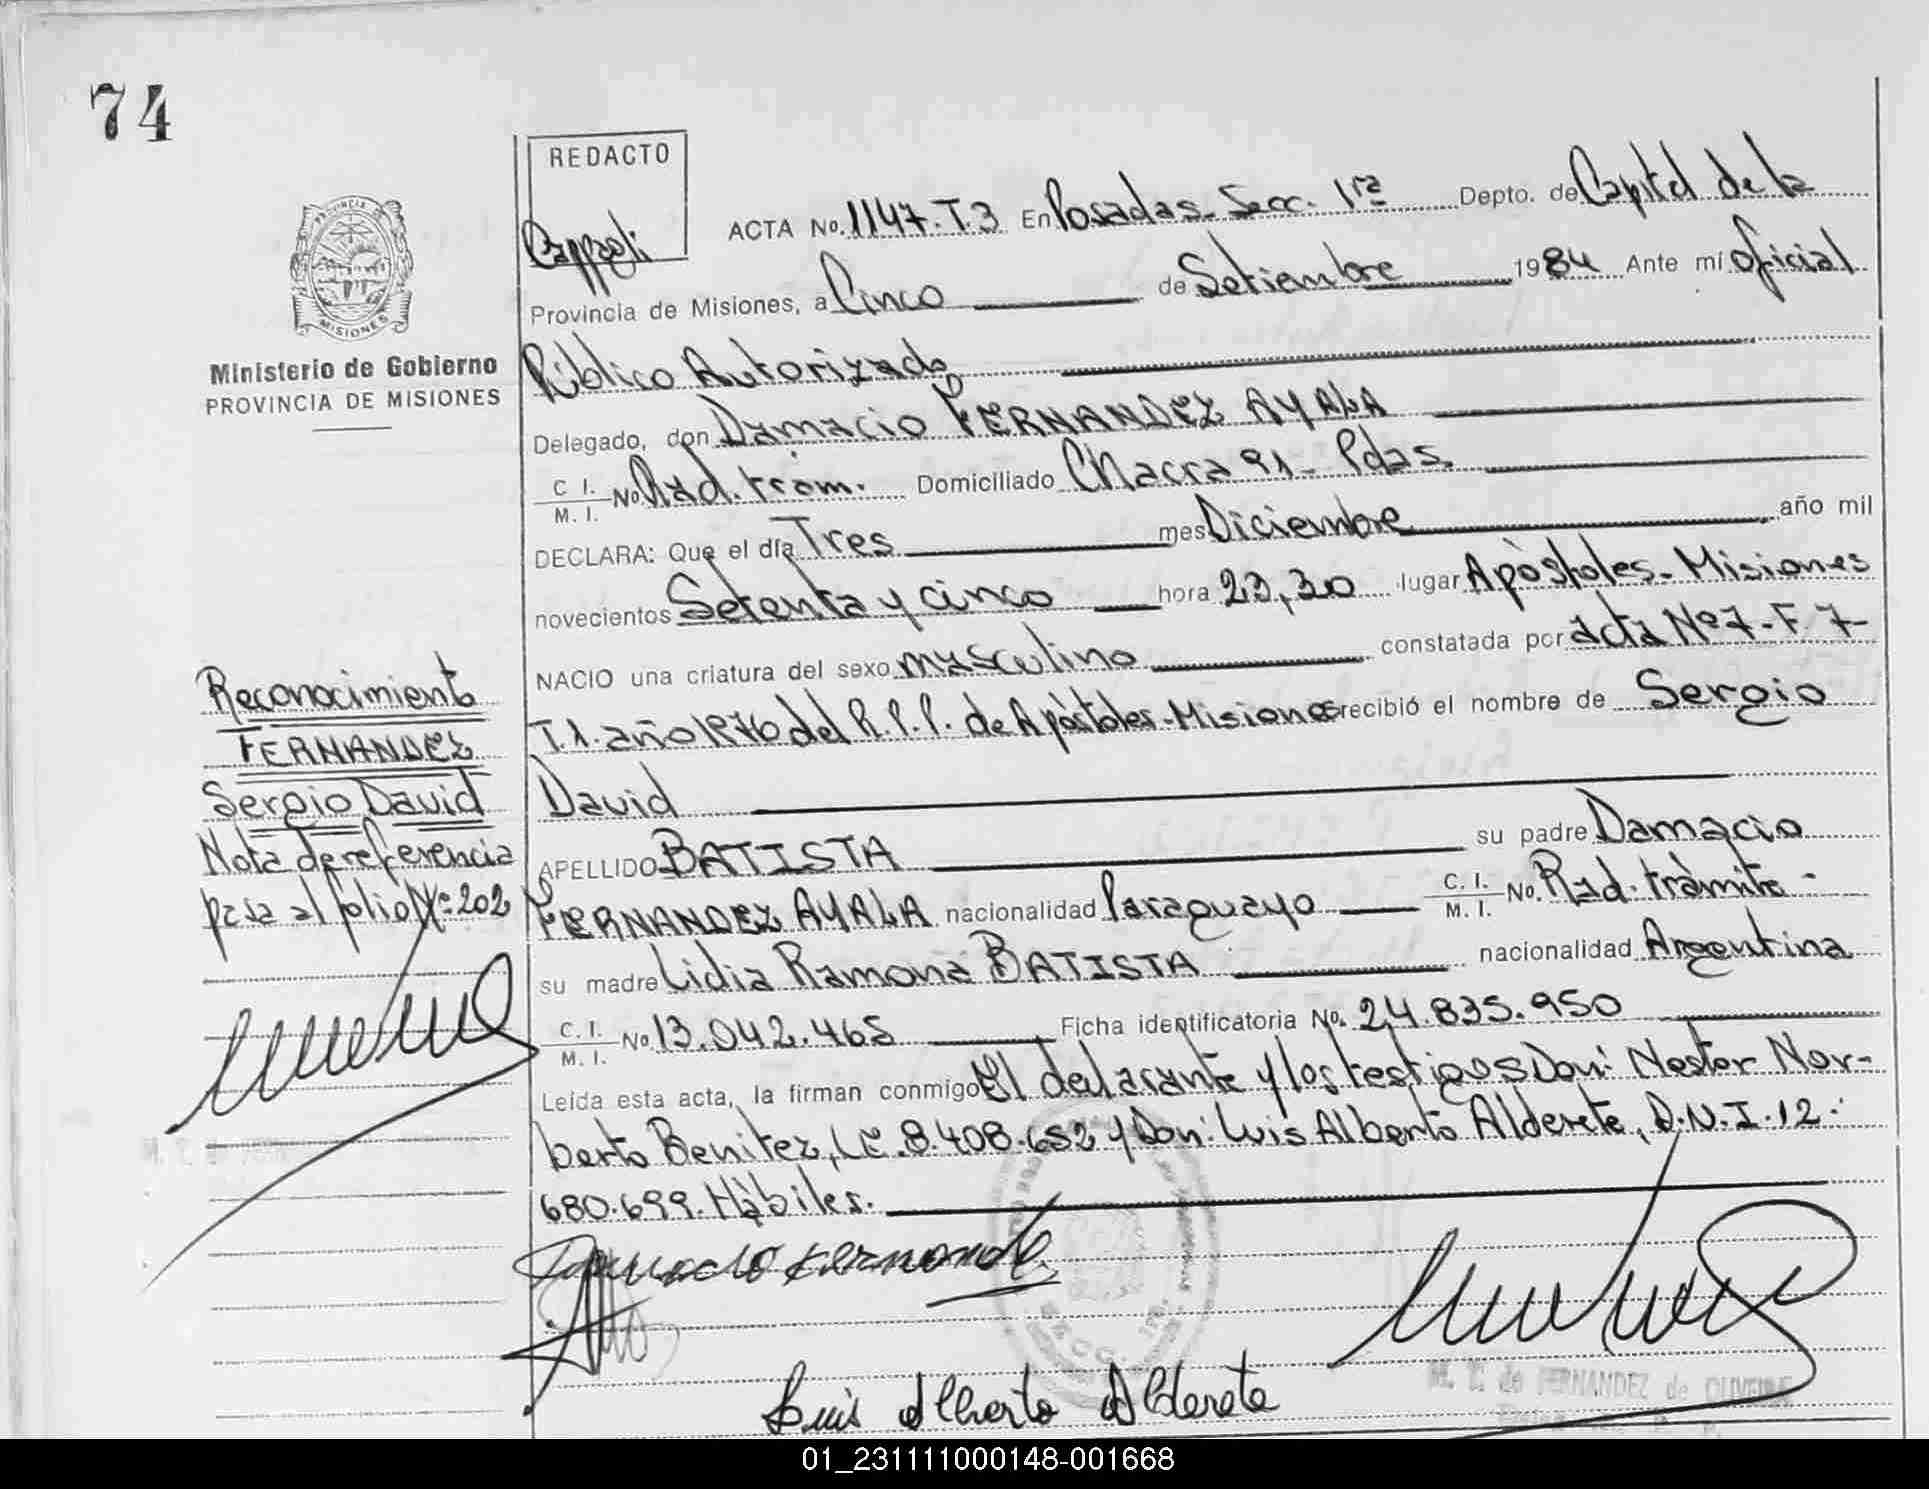 74
REDACTO
ACTA No. 1147.T.3 En Posadas. Secc. 1ra Depto. de Capital de la
Provincia de Misiones, a Cinco de Setiembre 1984 Ante mí Oficial
PROVINCIA DE
MISIONES
Ministerio de Gobierno
PROVINCIA DE MISIONES
Público Autorizado
Delegado, don Damacio FERNANDEZ AYALA
C. I.
M. I. No Rad. trám. Domiciliado Chacra 91 - Pdas.
DECLARA: Que el día Tres mes Diciembre año mil
novecientos Setenta y cinco hora 23,30 lugar Apòstoles - Misiones
NACIO una criatura del sexo masculino constatada por acta Nº 7 - F. 7 -
T.1. año 1976 del R.P.P. de Apòstoles - Misiones recibió el nombre de Sergio
David
APELLIDO BATISTA su padre Damacio
FERNANDEZ AYALA nacionalidad Paraguayo C. I.
M. I. No. Rad. tràmite -
su madre Lidia Ramona BATISTA nacionalidad Argentina
C. I.
M. I. No. 13.042.465 Ficha identificatoria No. 24.835.950
Leída esta acta, la firman conmigo El declarante y los testigos Don: Nestor Nor-
berto Benitez, L.E. 8.408.652 y Don: Luis Alberto Alderete, D.N.I. 12.
680.699. Hàbiles.
Reconocimiento
FERNANDEZ
Sergio David
Nota de referencia
pasa al folio Nº 202
Damacio Fernande
Luis Alberto Alderete
M. T. de FERNANDEZ de
01_231111000148-001668